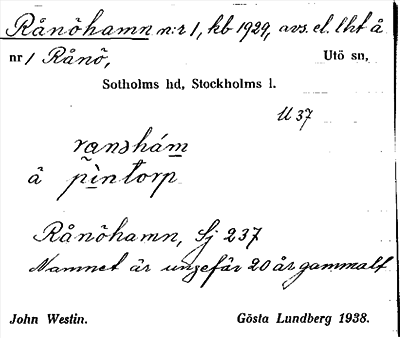 Rånöhamn n:r 1, kb 1929, avs. el. lht å
nr 1 Rånö, Utö sn,
Sotholms hd, Stockholms l.
U 37
ranshám
å pìntorp
Rånöhamn, Sj 237
Namnet är ungefär 20 år gammalt
John Westin. Gösta Lundberg 1938.